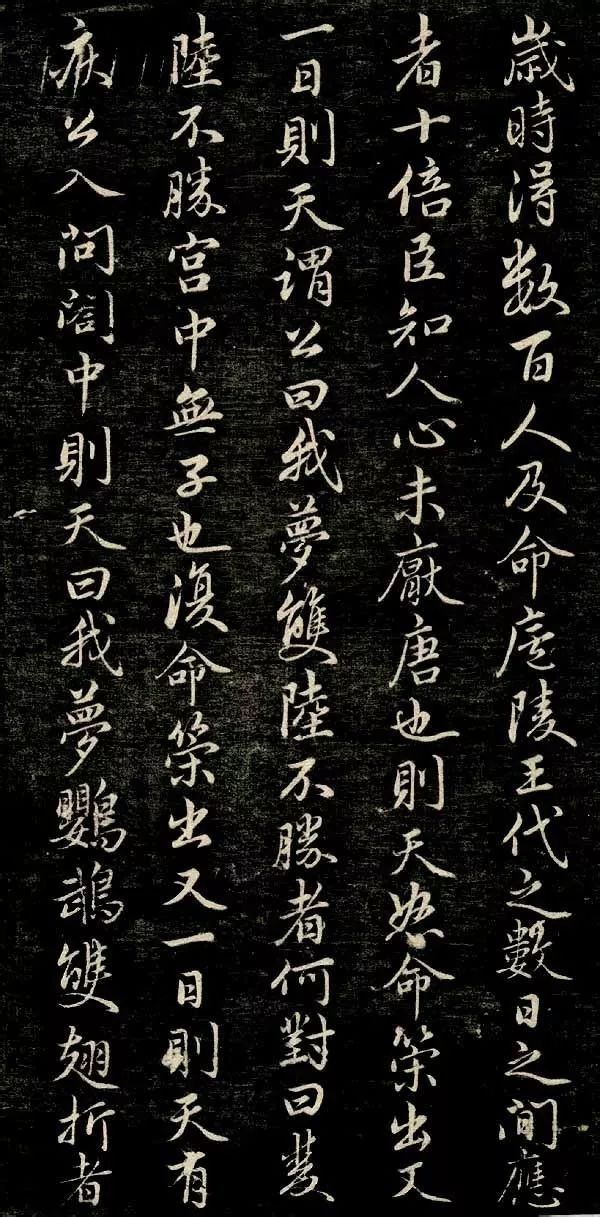 歲時得数百人及命廬陵王代之數日之間應
者十倍臣知人心未厭唐也則天怒命策出又
一日則天謂公曰我夢雙陸不勝者何對曰雙
陸不勝宫中無子也復命策出又一日則天有
疾公入問閤中則天曰我夢鸚鵡雙翅折者